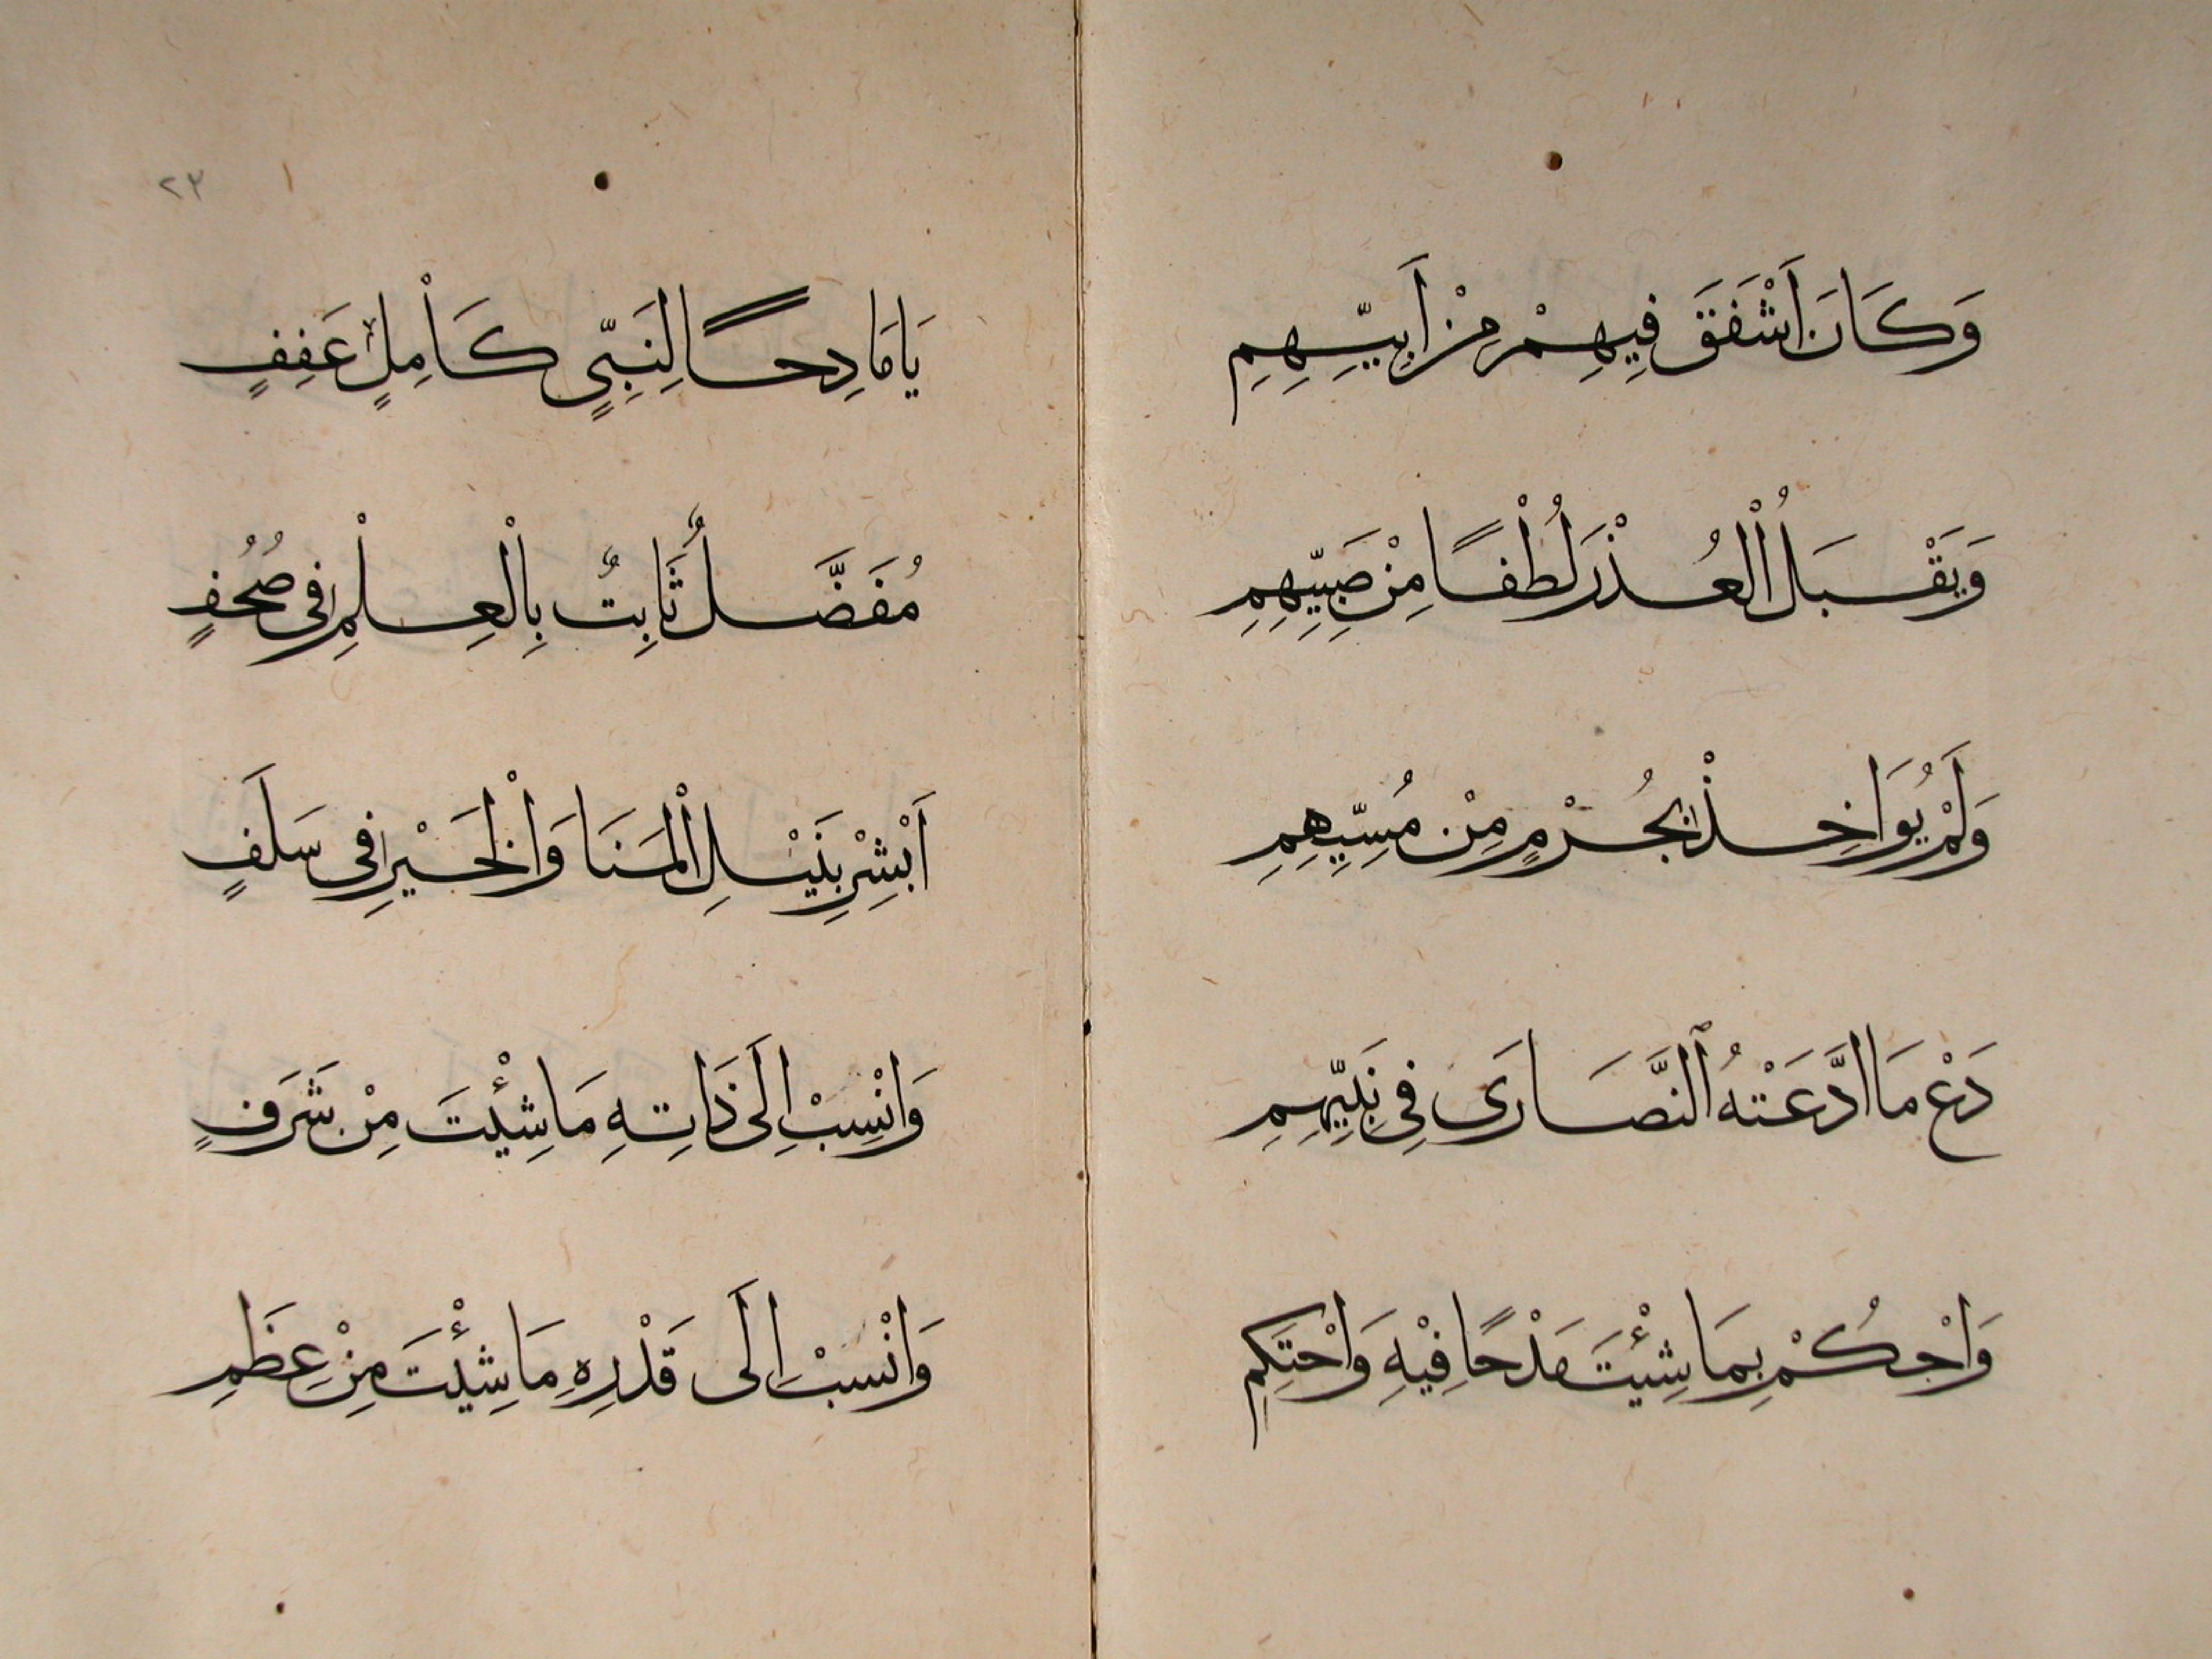 وَكَانَ أَشْفَقَ فِيهِمْ مِنْ أَبِيّهِمِ
وَيَقْبَلُ الْعُذْرَ لُطْفًا مِنْ صَبِيّهِمِ
وَلَمْ يُوَاخِذْ بِجُرْمٍ مِنْ مُسِيّهِمِ
دَعْ مَا ادَّعَتْهُ النَّصَارَى فِي نَبِيّهِمِ
وَاحْكُمْ بِمَا شِئْتَ مَدْحًا فِيْهِ وَاحْتَكِمِ
٢٣
يَا مَادِحًا لِنَبِيٍّ كَامِلٍ عَفِفٍ
مُفَضَّلٌ ثَابِتٌ بِالْعِلْمِ فِى صُحُفٍ
اَبْشِرْ بِنَيْلِ الْمَنَا وَالْخَيْرِ فِى سَلَفٍ
وَانْسِبْ اِلَى ذَاتِهِ مَا شِئْتَ مِنْ شَرَفٍ
وَانْسِبْ اِلَى قَدْرِهِ مَا شِئْتَ مِنْ عِظَمِ